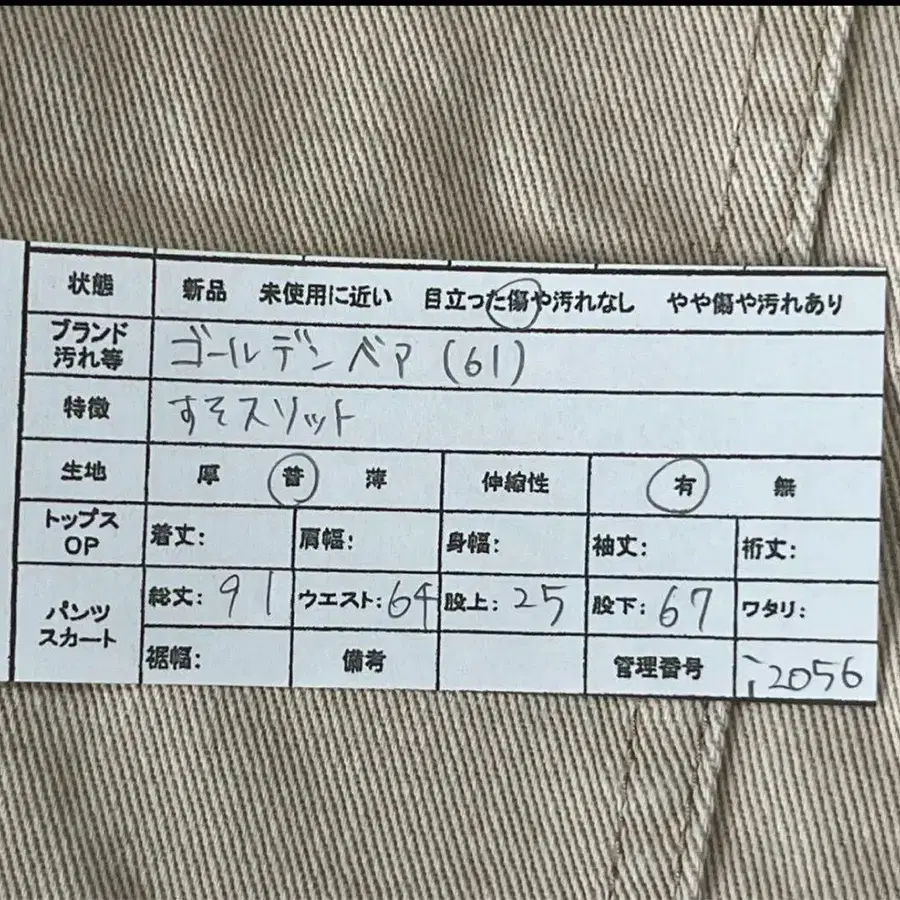 状態 新品 未使用に近い 目立った傷や汚れなし やや傷や汚れあり
ブランド
汚れ等 ゴールデンベア (61)
特徴 すそスリット
生地 厚 普 薄 伸縮性 有 無
トップス
OP 着丈: 肩幅: 身幅: 袖丈: 裄丈:
パンツ
スカート
総丈: 91 ウエスト: 64 股上: 25 股下: 67 ワタリ:
裾幅: 備考 管理番号 i2056